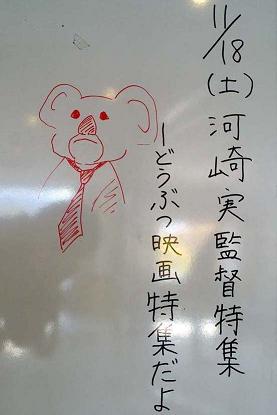 11/18(土)河崎実監督特集
ーどうぶつ映画特集だよ